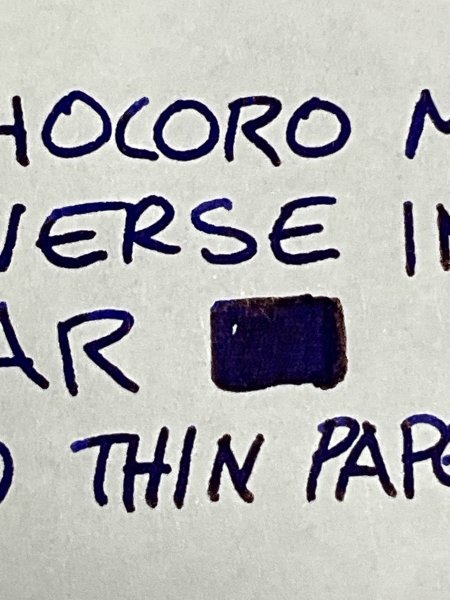 HOCORO M
VERSE IN
AR
O THIN PAPE